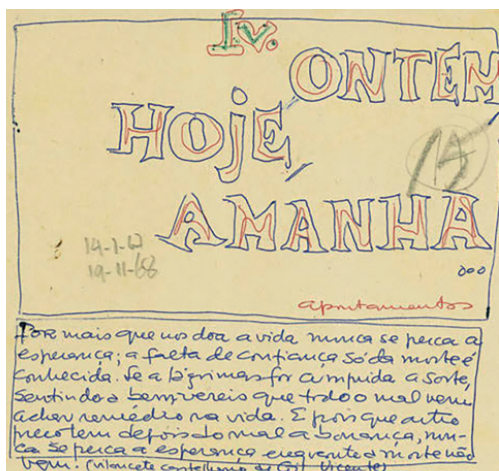 IV.
ONTEM
HOJE
15
AMANHÃ
...
14-1-67
19-11-68
apontamentos
Por mais que nos doa a vida nunca se perca a
esperança; a falta de confiança só da morte é
conhecida. Se a lágrimas for cumprida a sorte,
sentindo o bem vereis que todo o mal vem
achar remédio na vida. E pois que outro
preço tem depois do mal a bonança, nun-
ca se perca a esperança enquanto a morte não
vem. (vilancete castelhano de Gil Vicente)